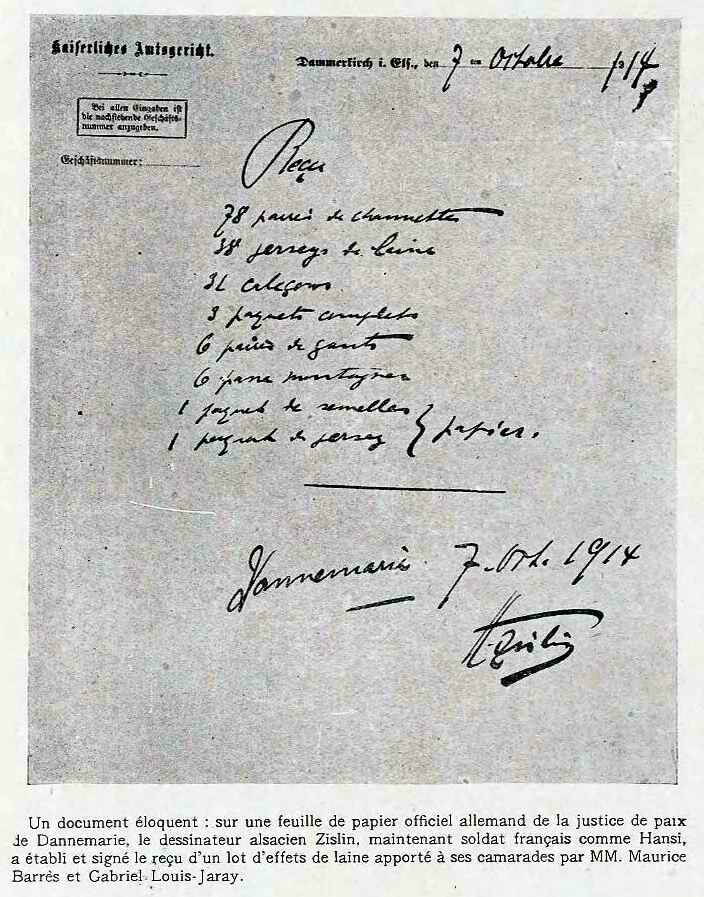 Kaiserliches Amtsgericht.
Dammerkirch i. Els., den 7 ten Octobre 1914
Bei allen Eingaben ist
die nachstehende Geschäfts-
nummer anzugeben.
Geschäftsnummer:
Reçu
78 paires de chaussettes
38 jerseys de laine
31 caleçons
3 paquets complets
6 paires de gants
6 passe montagnes
1 paquet de semelles
1 paquet de jersey } papier.
Dannemarie 7. Oct. 1914
H. Zislin
Un document éloquent : sur une feuille de papier officiel allemand de la justice de paix
de Dannemarie, le dessinateur alsacien Zislin, maintenant soldat français comme Hansi,
a établi et signé le reçu d'un lot d'effets de laine apporté à ses camarades par MM. Maurice
Barrès et Gabriel Louis-Jaray.